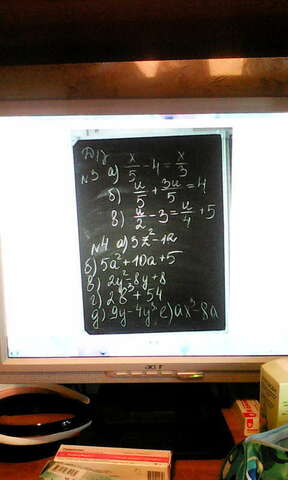 Д/з
№3 а) x/5 - 4 = x/3
б) u/5 + 3u/5 = 4
в) u/2 - 3 = u/4 + 5
№4 а) 3z² - 12
б) 5a² + 10a + 5
в) 2y² - 8y + 8
г) 2b³ + 54
д) 9y - 4y³ е) ax³ - 8a
acer